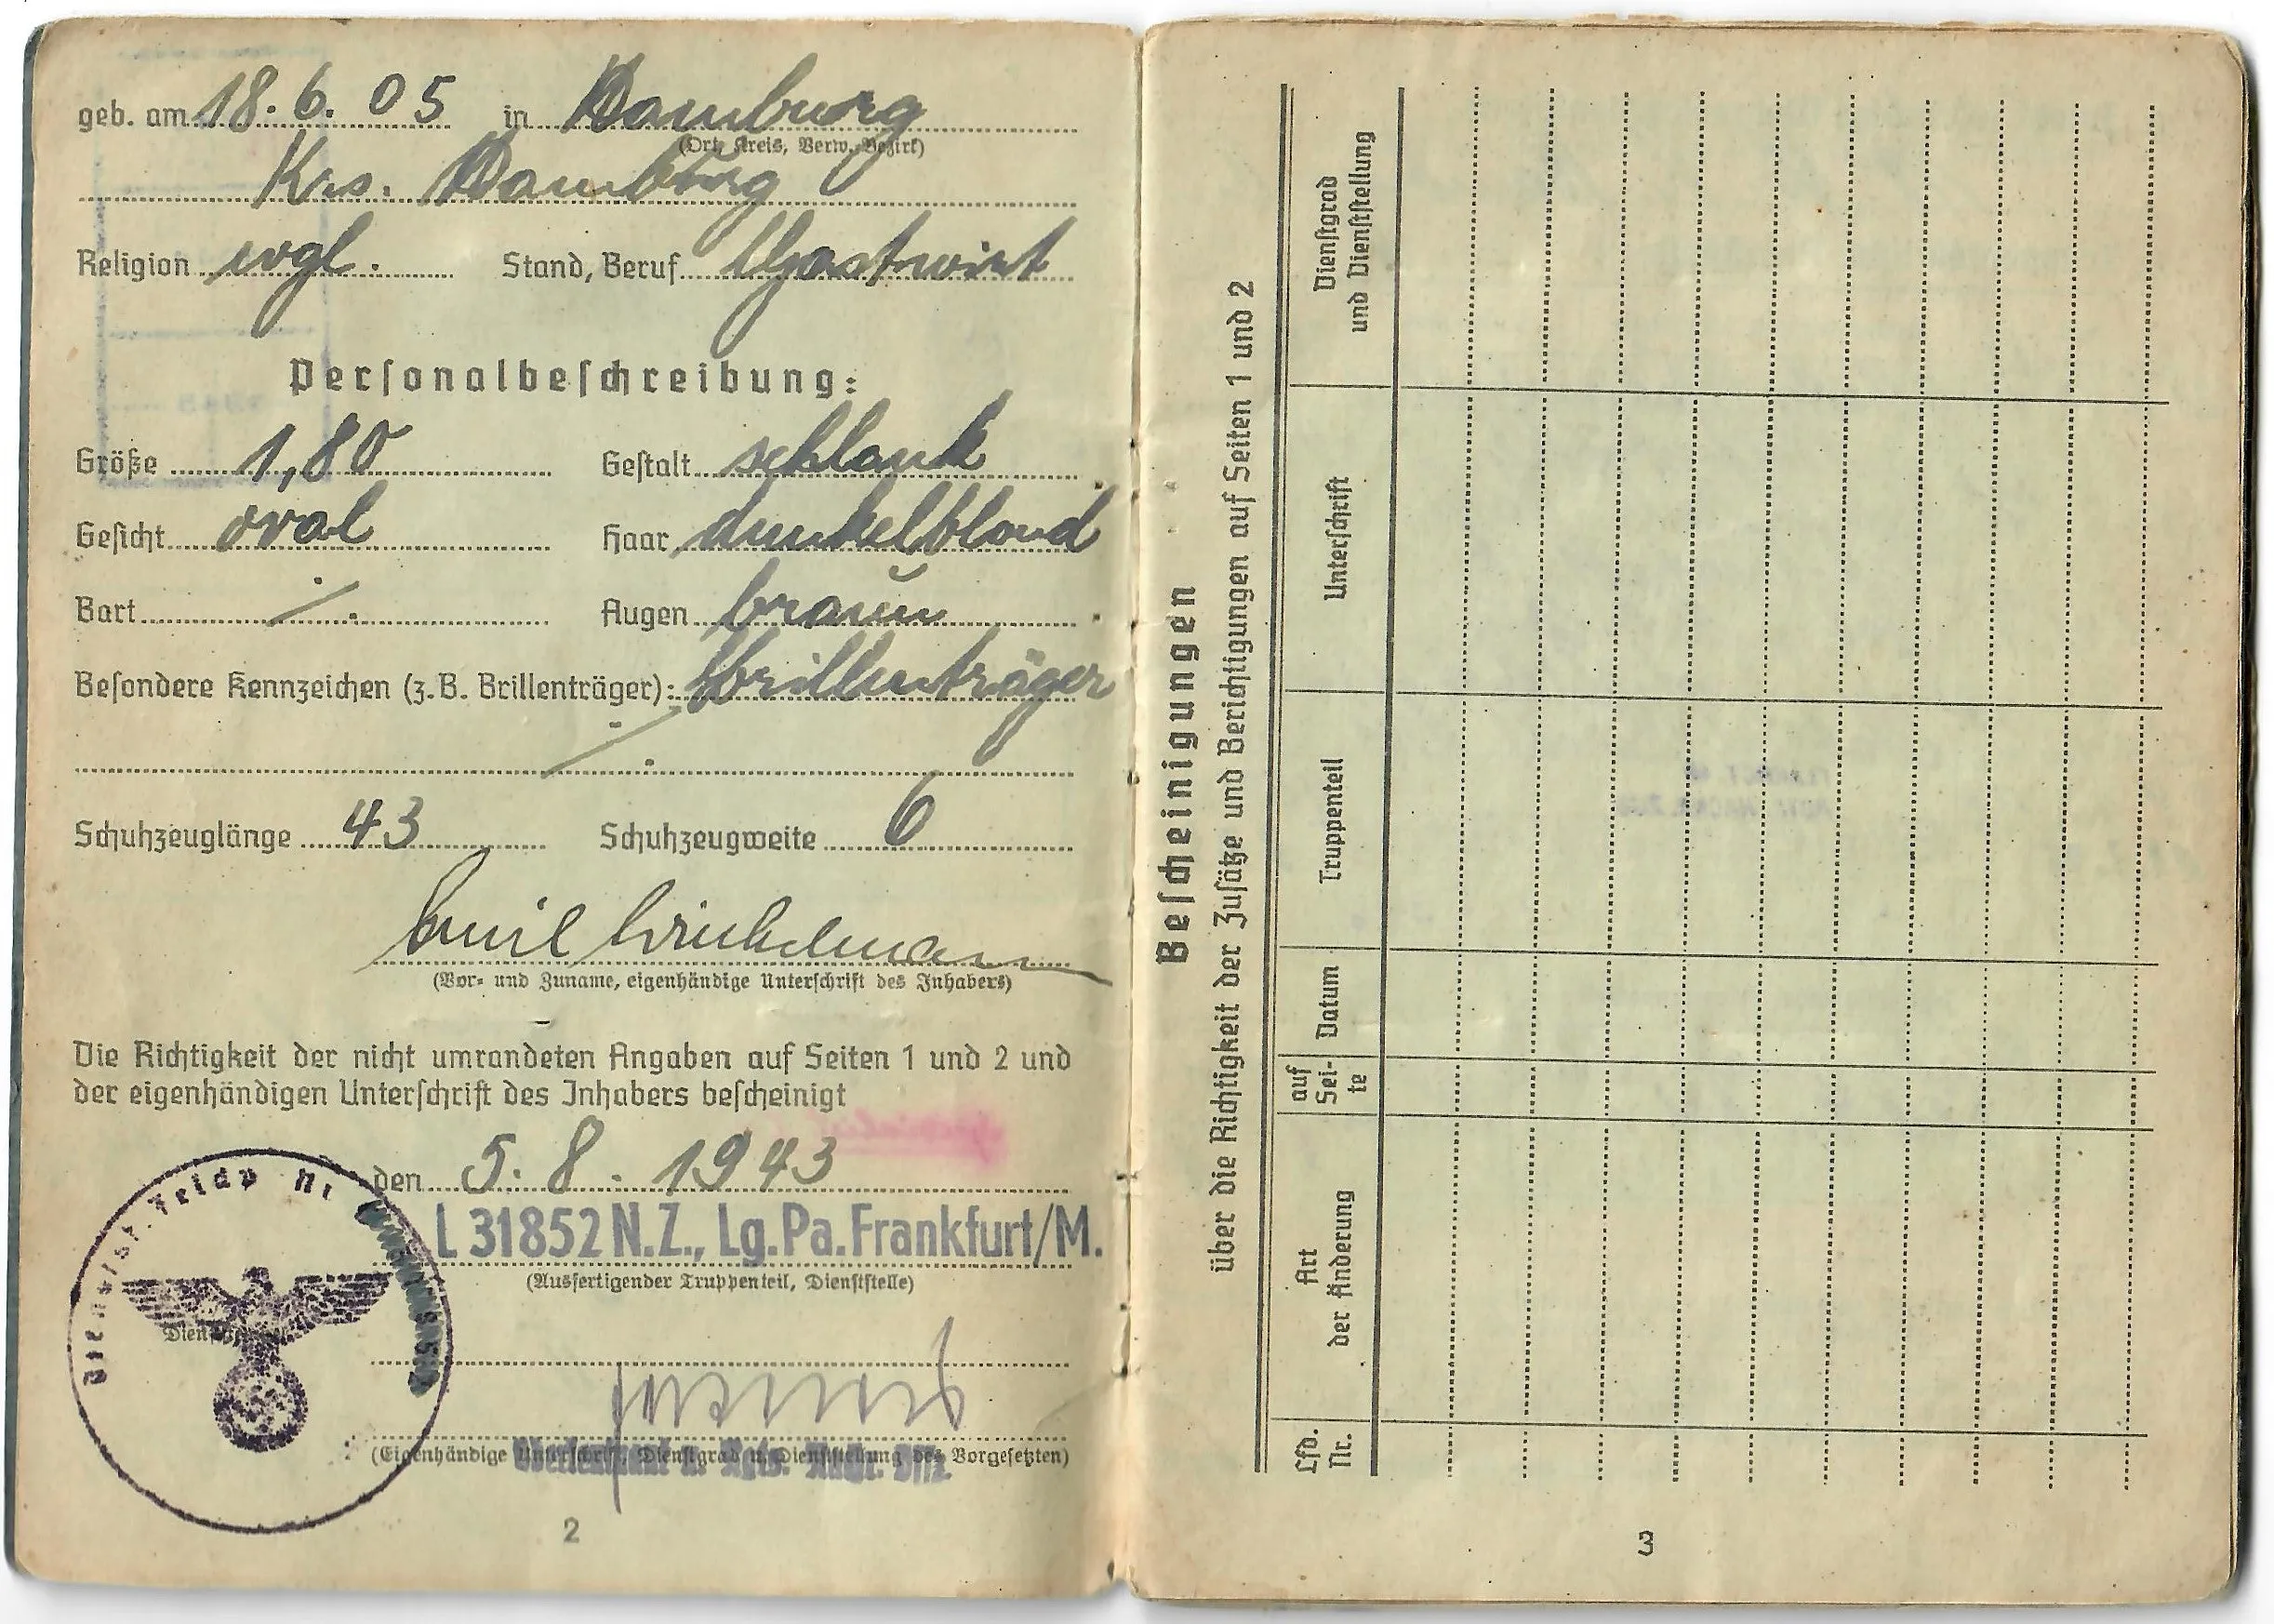 geb. am 18.6.05 in Hamburg
(Ort, Kreis, Verw.-Bezirk)
Krs. Hamburg
Religion evgl. Stand, Beruf Gastwirt
Personalbeschreibung:
Größe 1,80 Gestalt schlank
Gesicht oval Haar dunkelblond
Bart ./. Augen braun
Besondere Kennzeichen (z.B. Brillenträger): Brillenträger
./.
Schuhzeuglänge 43 Schuhzeugweite 6
Emil Winkelmann
(Vor- und Zuname, eigenhändige Unterschrift des Inhabers)
Die Richtigkeit der nicht umrandeten Angaben auf Seiten 1 und 2 und
der eigenhändigen Unterschrift des Inhabers bescheinigt
den 5.8.1943
L 31852 N.Z., Lg.Pa. Frankfurt/M.
(Ausfertigender Truppenteil, Dienststelle)
Dienstst. Feldp Nr
(Eigenhändige Unterschrift, Dienstgrad u. Dienststellung des Vorgesetzten)
2
Bescheinigungen
über die Richtigkeit der Zusätze und Berichtigungen auf Seiten 1 und 2
Lfd. Nr.
Art der Änderung
auf Sei- te
Datum
Truppenteil
Unterschrift
Dienstgrad und Dienststellung
3